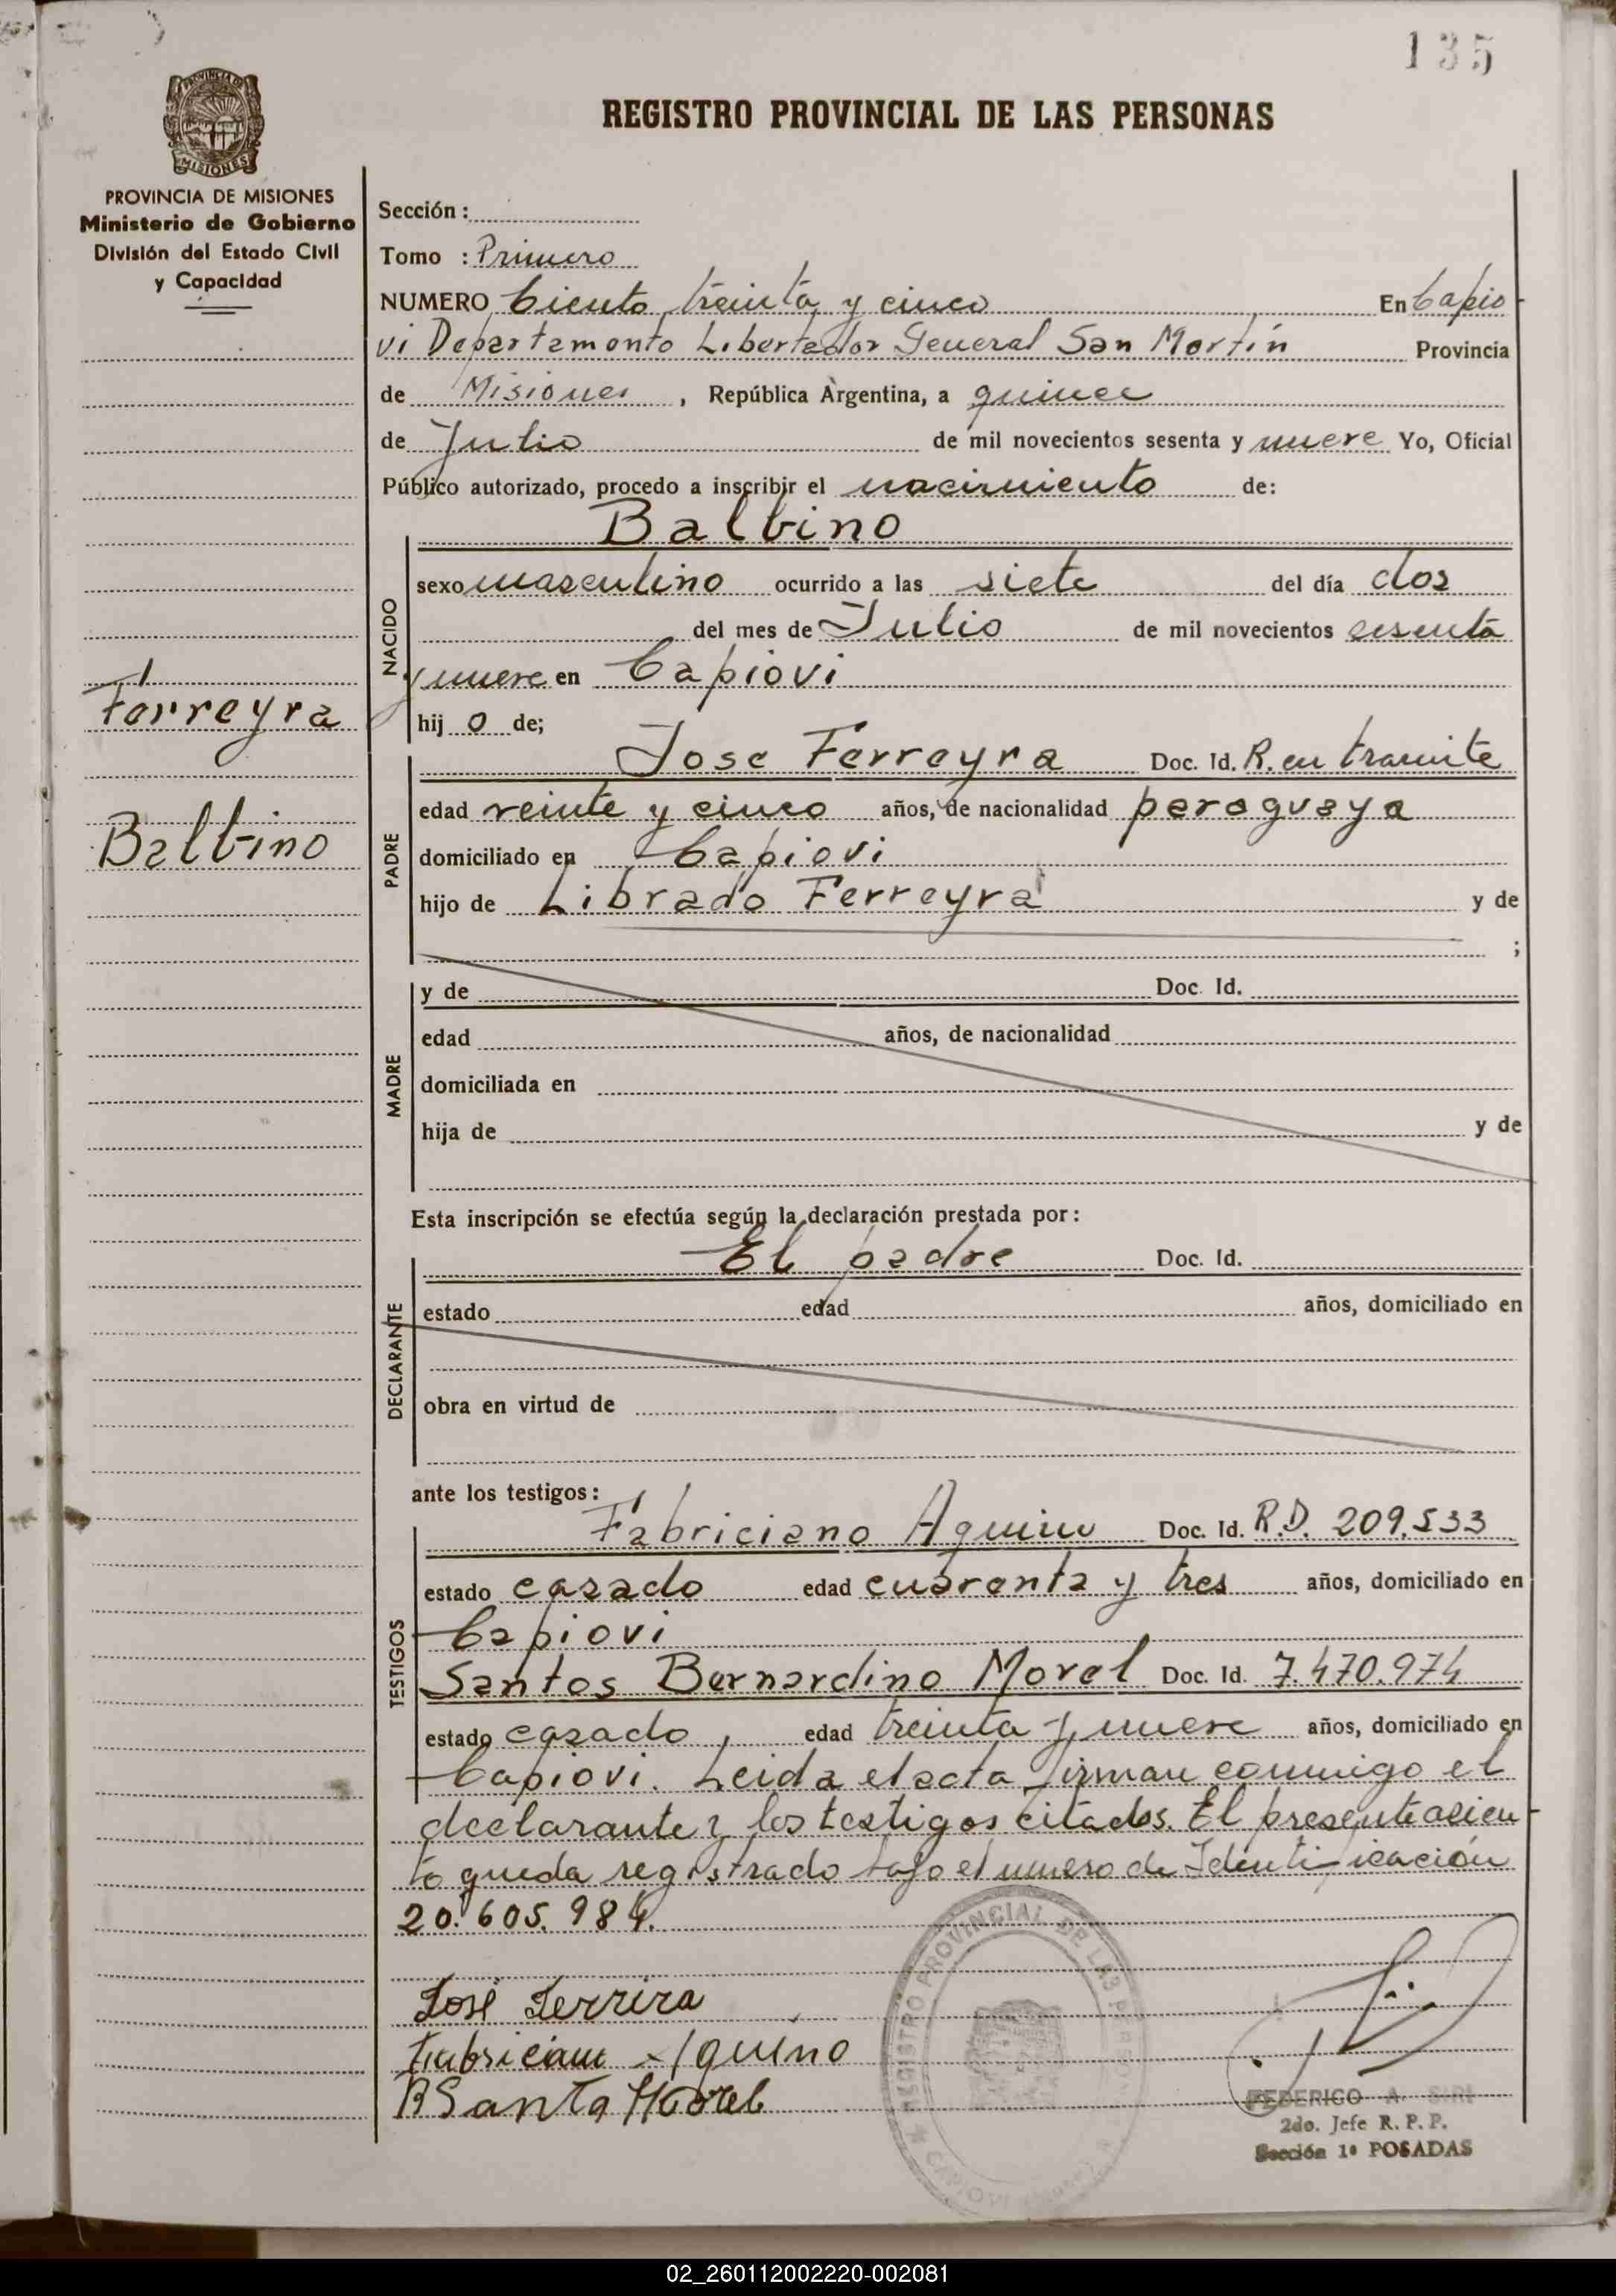 135
REGISTRO PROVINCIAL DE LAS PERSONAS
MISIONES
PROVINCIA DE MISIONES
Ministerio de Gobierno
División del Estado Civil
y Capacidad
Ferreyra
Balbino
Sección :
Tomo : Primero
NUMERO Ciento treinta y cinco En Capio
vi Departamento Libertador General San Martín Provincia
de Misiones , República Argentina, a quince
de Julio de mil novecientos sesenta y nueve Yo, Oficial
Público autorizado, procedo a inscribir el nacimiento de:
NACIDO
Balbino
sexo masculino ocurrido a las siete del día dos
del mes de Julio de mil novecientos sesenta
y nueve en Capiovi
hij o de;
PADRE
Jose Ferreyra Doc. Id. R. en tramite
edad veinte y cinco años, de nacionalidad paraguaya
domiciliado en Capiovi
hijo de Librado Ferreyra y de
;
MADRE
y de Doc. Id.
edad años, de nacionalidad
domiciliada en
hija de y de
Esta inscripción se efectúa según la declaración prestada por :
DECLARANTE
El padre Doc. Id.
estado edad años, domiciliado en
obra en virtud de
ante los testigos :
TESTIGOS
Fabriciano Aquino Doc. Id. R.D. 209.533
estado casado edad cuarenta y tres años, domiciliado en
Capiovi
Santos Bernardino Morel Doc. Id. 7.470.974
estado casado, edad treinta y nueve años, domiciliado en
Capiovi. Leida el acta firman conmigo el
declarante y los testigos citados. El presente asien
to queda registrado bajo el numero de Identificación
20.605.984.
José Ferrira
Fabriciano Aquino
B Santo Morel
REGISTRO PROVINCIAL DE LAS PERSONAS
CAPIOVI
FEDERICO A. SIRI
2do. Jefe R. P. P.
Sección 1ª POSADAS
02_260112002220-002081